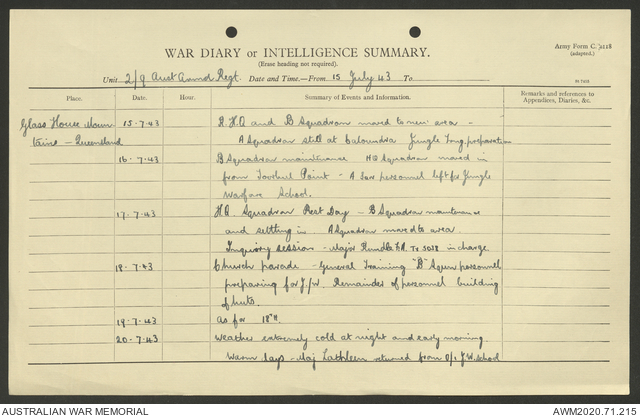 Army Form C. 2118
(adapted.)
WAR DIARY or INTELLIGENCE SUMMARY.
(Erase heading not required).
Unit 2/9 Aust Armd Regt. Date and Time—From 15 July 43 To
Place. Date. Hour. Summary of Events and Information. Remarks and references to Appendices, Diaries, &c.
Glass House Moun 15.7.43 R.H.Q and B Squadron moved to new area -
tains - Queensland A Squadron still at Caloundra Jungle Trng. preparation
16.7.43 B Squadron maintenance HQ Squadron moved in
from Toorbul Point - A few personnel left for Jungle
Warfare School.
17.7.43 H.Q. Squadron Rest Day - B Squadron maintenance
and settling in. A Squadron moved to area.
Inquiry session - Major Rundle in charge.
18.7.43 Church parade - General Training "B" Sqdn personnel
preparing for J/W. Remainder of personnel building
of huts.
19.7.43 as for 18th.
20.7.43 Weather extremely cold at night and early morning.
Warm days - Maj returned from J.W. School
AUSTRALIAN WAR MEMORIAL AWM2020.71.215